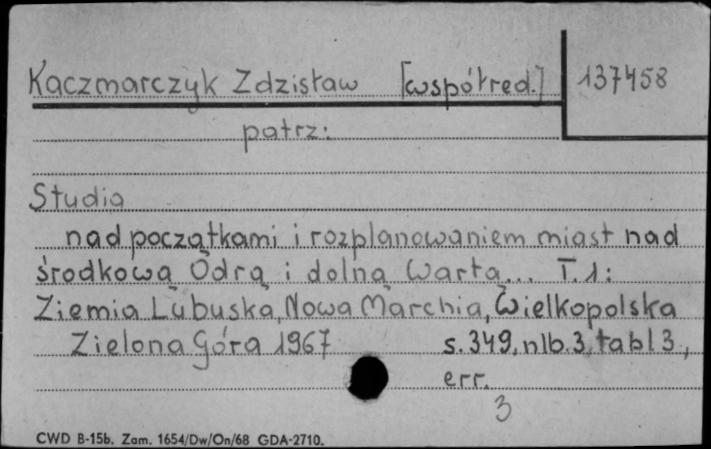 Kaczmarczyk Zdzisław [współred.] 137458
patrz:
Studia
nad początkami i rozplanowaniem miast nad
środkową Odrą i dolną Wartą... T.1:
Ziemia Lubuska, Nowa Marchia, Wielkopolska
Zielona Góra 1967 s. 349, nlb. 3, tabl 3,
err.
3
CWD B-15b. Zam. 1654/Dw/On/68 GDA-2710.